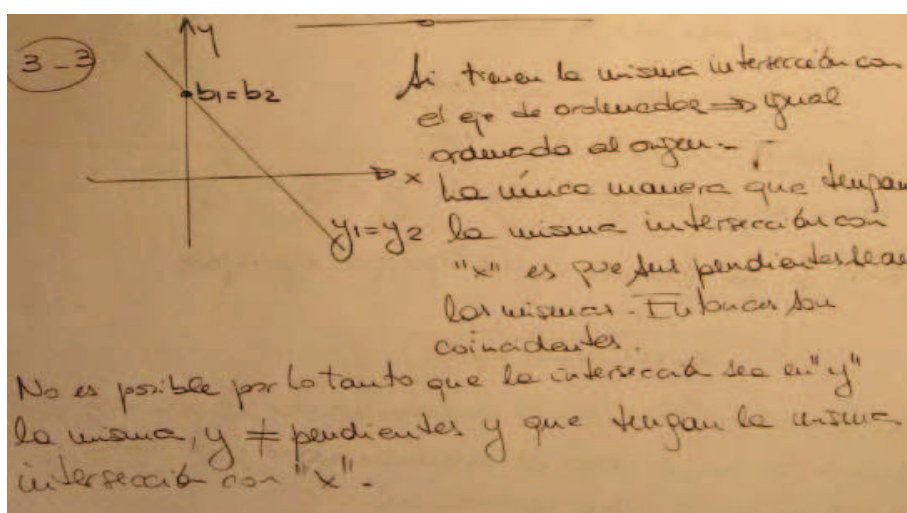 3-3
y
b1=b2
x
y1=y2
Si tienen la misma intersección con
el eje de ordenadas => igual
ordenada al origen.-
La única manera que tengan
la misma intersección con
"x" es que sus pendientes sean
las mismas. Entonces son
coincidentes.
No es posible por lo tanto que la intersección sea en "y"
la misma, y ≠ pendientes y que tengan la misma
intersección con "x".-